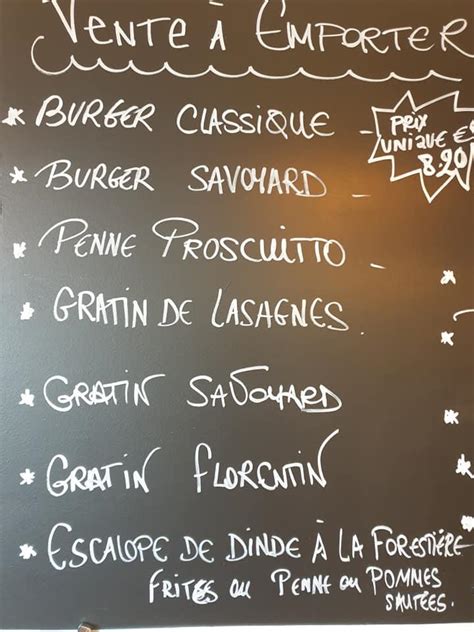 VENTE À EMPORTER
* BURGER CLASSIQUE -
PRIX
UNIQUE €
8.90
* BURGER SAVOYARD -
* PENNE PROSCUITTO -
* GRATIN DE LASAGNES.
* GRATIN SAVOYARD
* GRATIN FLORENTIN
* ESCALOPE DE DINDE À LA FORESTIÈRE
FRITES OU PENNE OU POMMES
SAUTÉES.